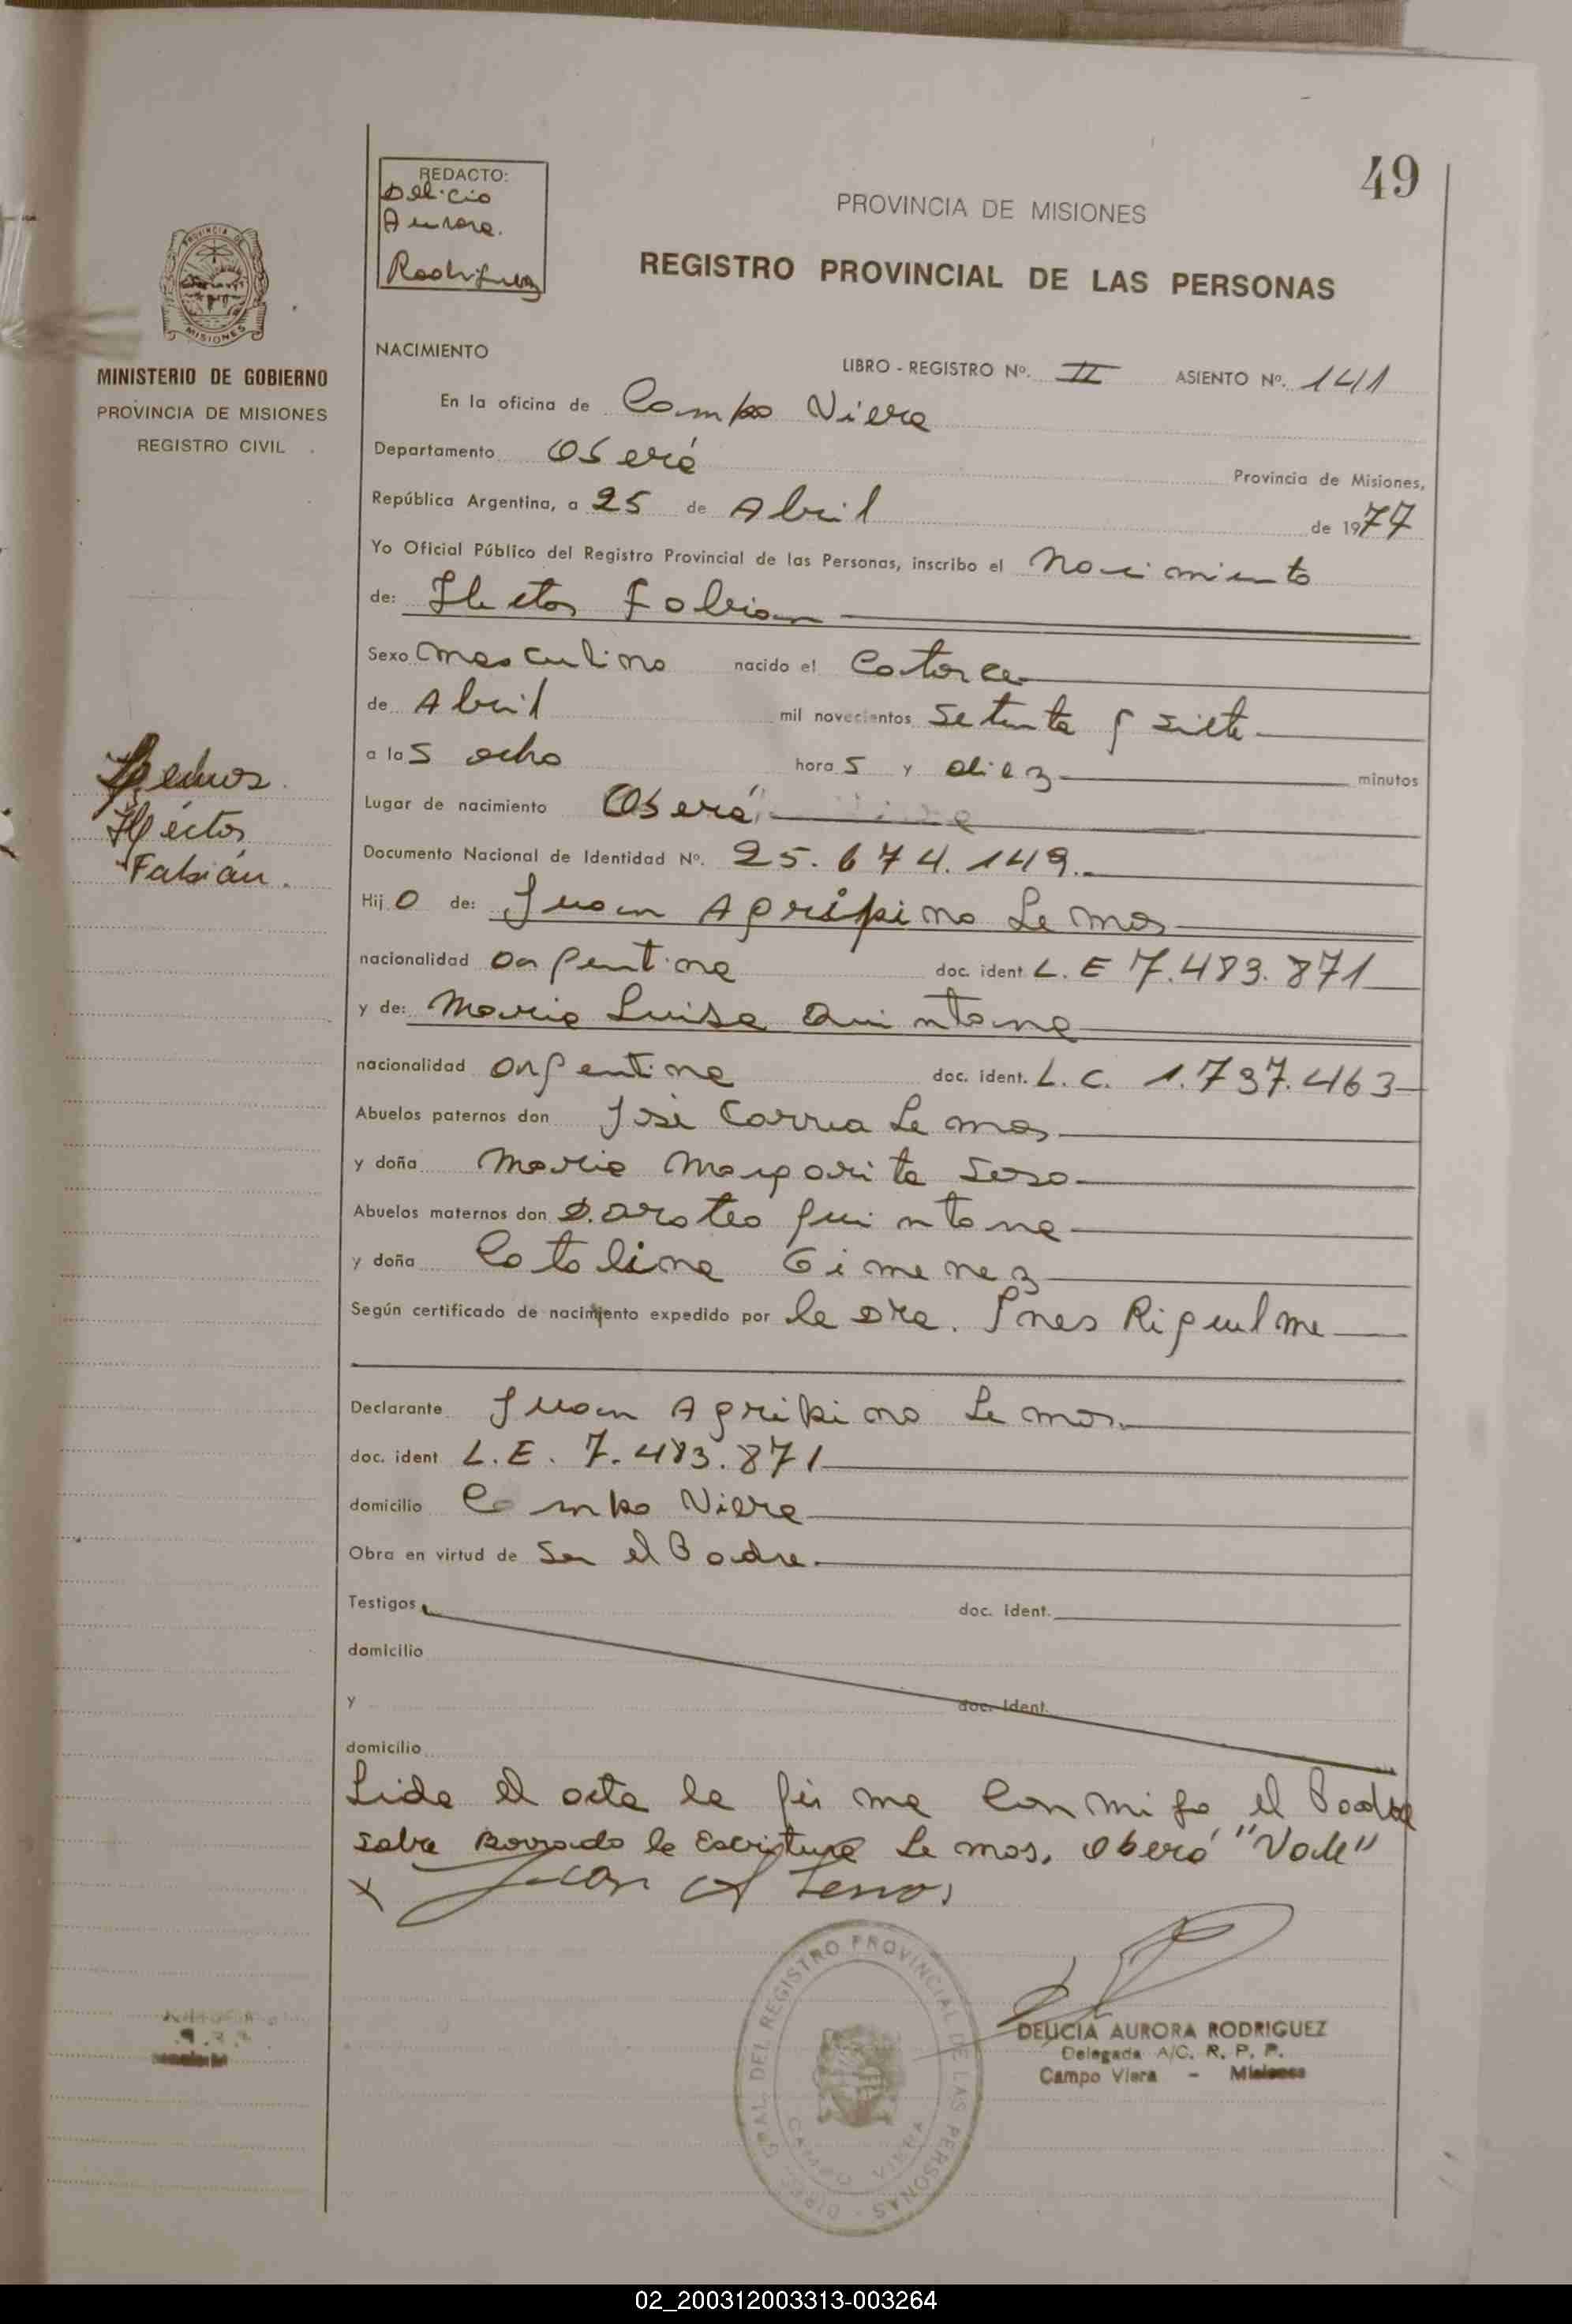 49
REDACTO:
Delicia
Aurora.
Rodriguez
PROVINCIA DE MISIONES
REGISTRO PROVINCIAL DE LAS PERSONAS
PROVINCIA DE
MISIONES
MINISTERIO DE GOBIERNO
PROVINCIA DE MISIONES
REGISTRO CIVIL
NACIMIENTO
LIBRO - REGISTRO Nº. II ASIENTO Nº. 141
En la oficina de Campo Viera
Departamento Oberá Provincia de Misiones,
República Argentina, a 25 de Abril de 1977
Yo Oficial Público del Registro Provincial de las Personas, inscribo el Nacimiento
de: Hector Fabian
Sexo masculino nacido el Catorce
de Abril mil novecientos setenta y siete
a las ocho horas y diez minutos
Lugar de nacimiento Oberá
Documento Nacional de Identidad Nº. 25.674.149.
Hijo de: Juan Agripino Lemos
nacionalidad argentina doc. ident. L. E 7.483.871
y de: Maria Luisa Quintana
nacionalidad argentina doc. ident. L. C. 1.737.463
Abuelos paternos don José Correa Lemos
y doña Maria Margarita Soso
Abuelos maternos don Doroteo Quintana
y doña Catalina Gimenez
Según certificado de nacimiento expedido por la Dra. Ines Riquelme
Declarante Juan Agripino Lemos
doc. ident L. E. 7.483.871
domicilio Campo Viera
Obra en virtud de Ser el Padre.
Testigos doc. ident.
domicilio
y doc. ident.
domicilio
Lida el acta la firma conmigo, el Padre
sobre Borrado la Escritura Lemos, Oberá "Vale"
x Juan A Lemos
Lemos
Héctor
Fabián.
DIREC. GRAL. DEL REGISTRO PROVINCIAL DE LAS PERSONAS
CAMPO VIERA
DELICIA AURORA RODRIGUEZ
Delegada A/C. R. P. P.
Campo Viera - Misiones
02_200312003313-003264